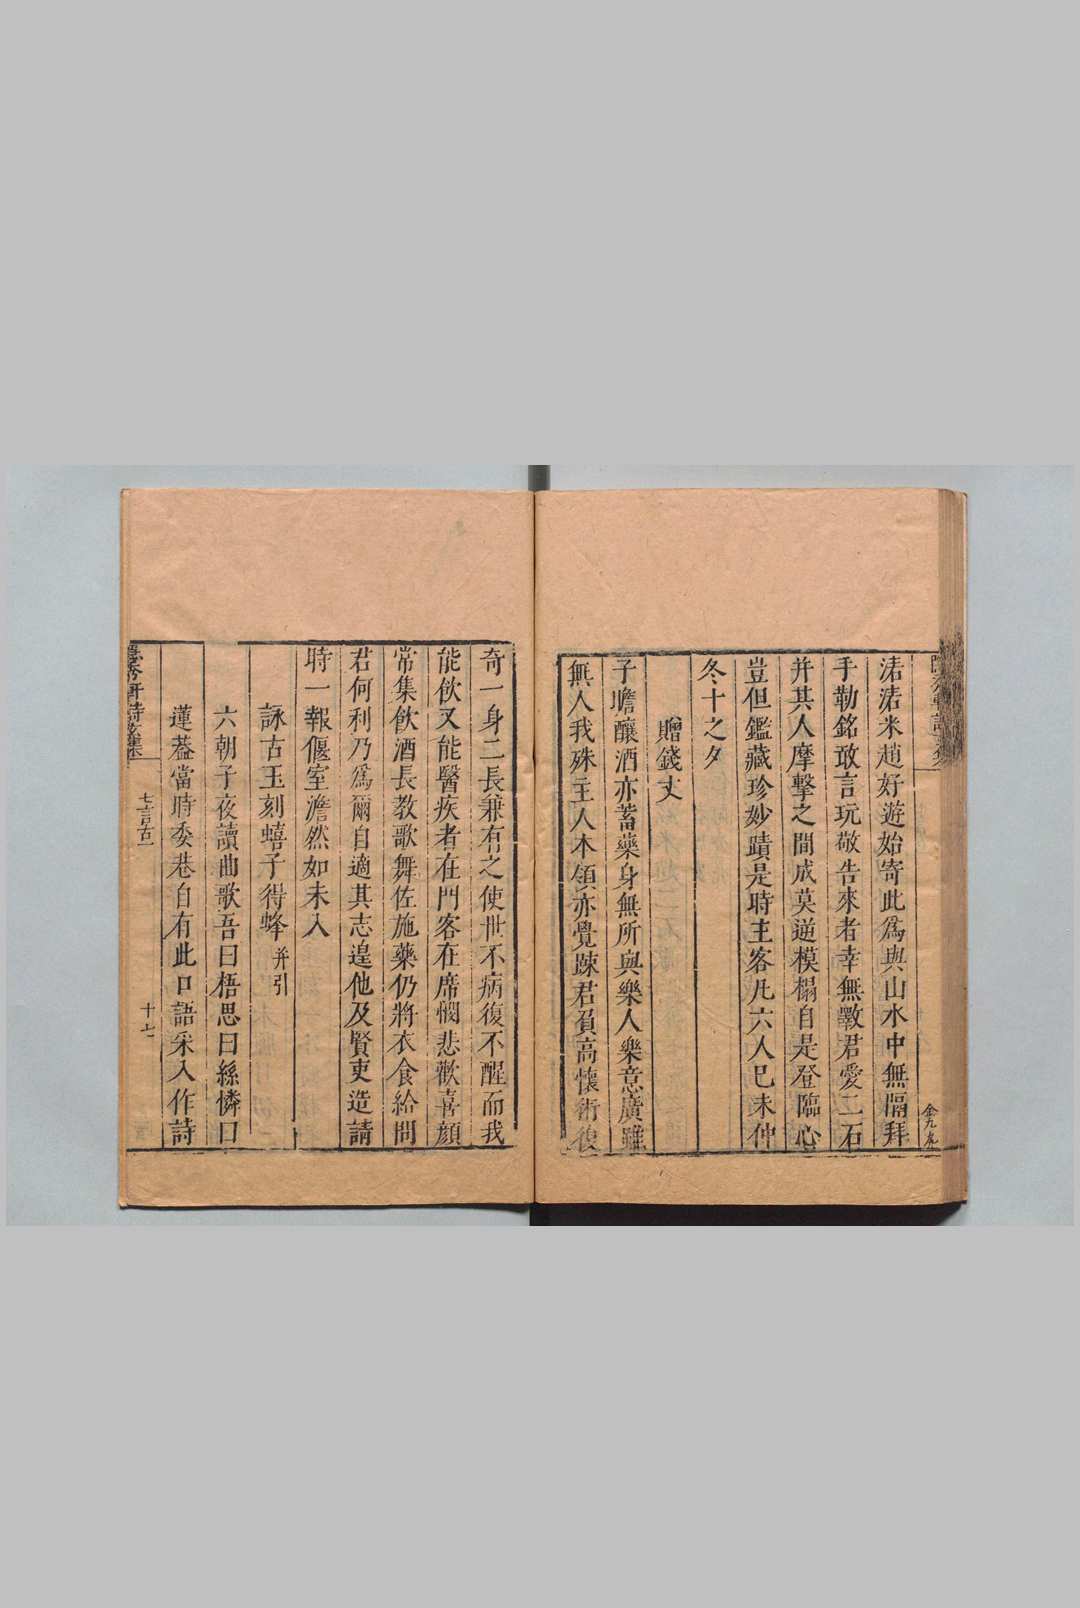 渚渚米趙好遊始寄此爲與山水中無隔拜
手勒銘敢言玩敬告來者幸無斁君愛二石
并其人摩擊之間成莫逆模榻自是登臨心
豈但鑑藏珍妙蹟是時主客凡六人巳未仲
冬十之夕
贈錢丈
子瞻釀酒亦蓄藥身無所與樂人樂意廣雖
無人我殊主人本領亦覺踈君負高懷術復
奇一身二長兼有之使世不病復不醒而我
能飲又能醫疾者在門客在席憫悲歡喜顔
常集飲酒長教歌舞佐施藥仍將衣食給問
君何利乃爲爾自適其志遑他及賢吏造請
時一報偃室澹然如未入
詠古玉刻蟢子得蜂并引
六朝子夜讀曲歌吾曰梧思曰絲憐曰
蓮葢當時委巷自有此口語采入作詩
七言古
十七